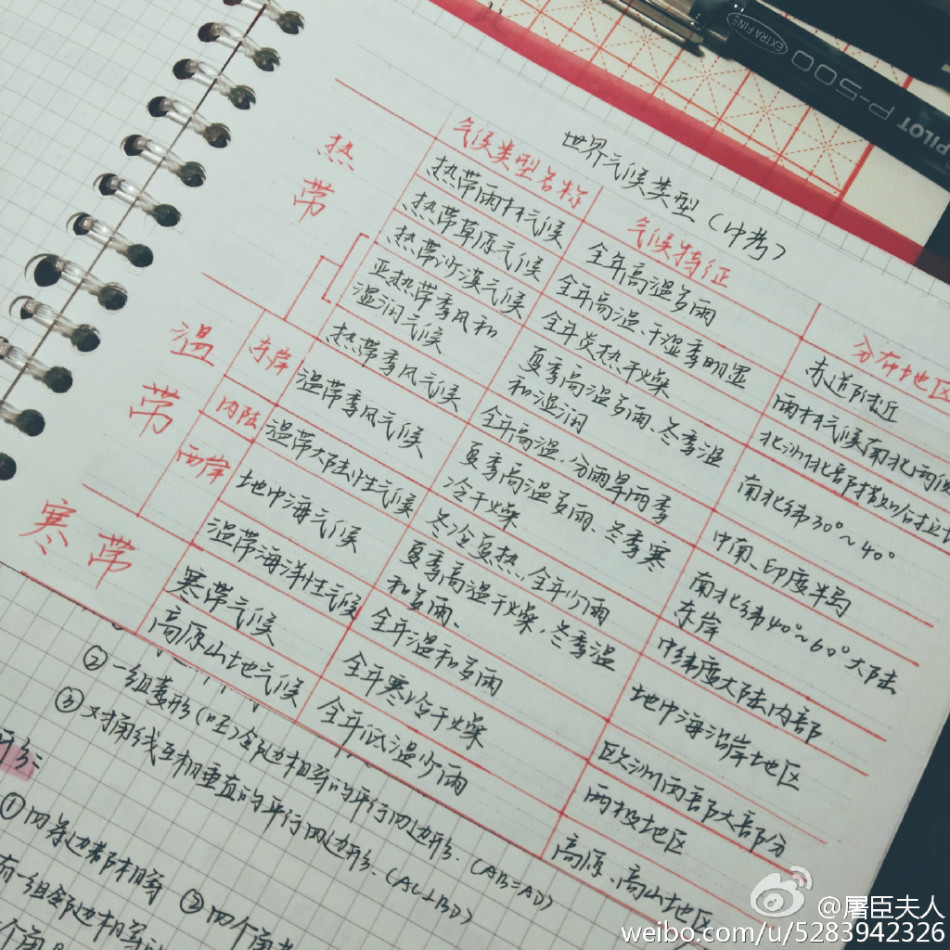 世界气候类型(中考)
气候类型名称 气候特征 分布地区
热带
热带雨林气候 全年高温多雨 赤道附近
热带草原气候 全年高温、干湿季明显 雨林气候南北两侧
热带沙漠气候 全年炎热干燥 北洲北部
亚热带季风和 夏季高温多雨、冬季温 南北纬30°~40°
湿润气候 和湿润
热带季风气候 全年高温,分雨旱两季 中南、印度半岛
温带
东岸 温带季风气候 夏季高温多雨、冬季寒 南北纬40°~60°大陆
冷干燥 东岸
内陆 温带大陆性气候 冬冷夏热,全年少雨 中纬度大陆内部
西岸 地中海气候 夏季高温干燥,冬季温 地中海沿岸地区
和多雨、
温带海洋性气候 全年温和多雨 欧洲西部大部分
寒带
寒带气候 全年寒冷干燥 两极地区
高原山地气候 全年低温少雨 高原、高山地区
②一组菱形(哎)邻边相等的平行四边形.(AB=AD)
③对角线互相垂直的平行四边形.(AC⊥BD)
①四条边都相等 ②四个角
有一组邻边相等
PILOT P-500
EXTRA FINE
@屠臣夫人
weibo.com/u/5283942326